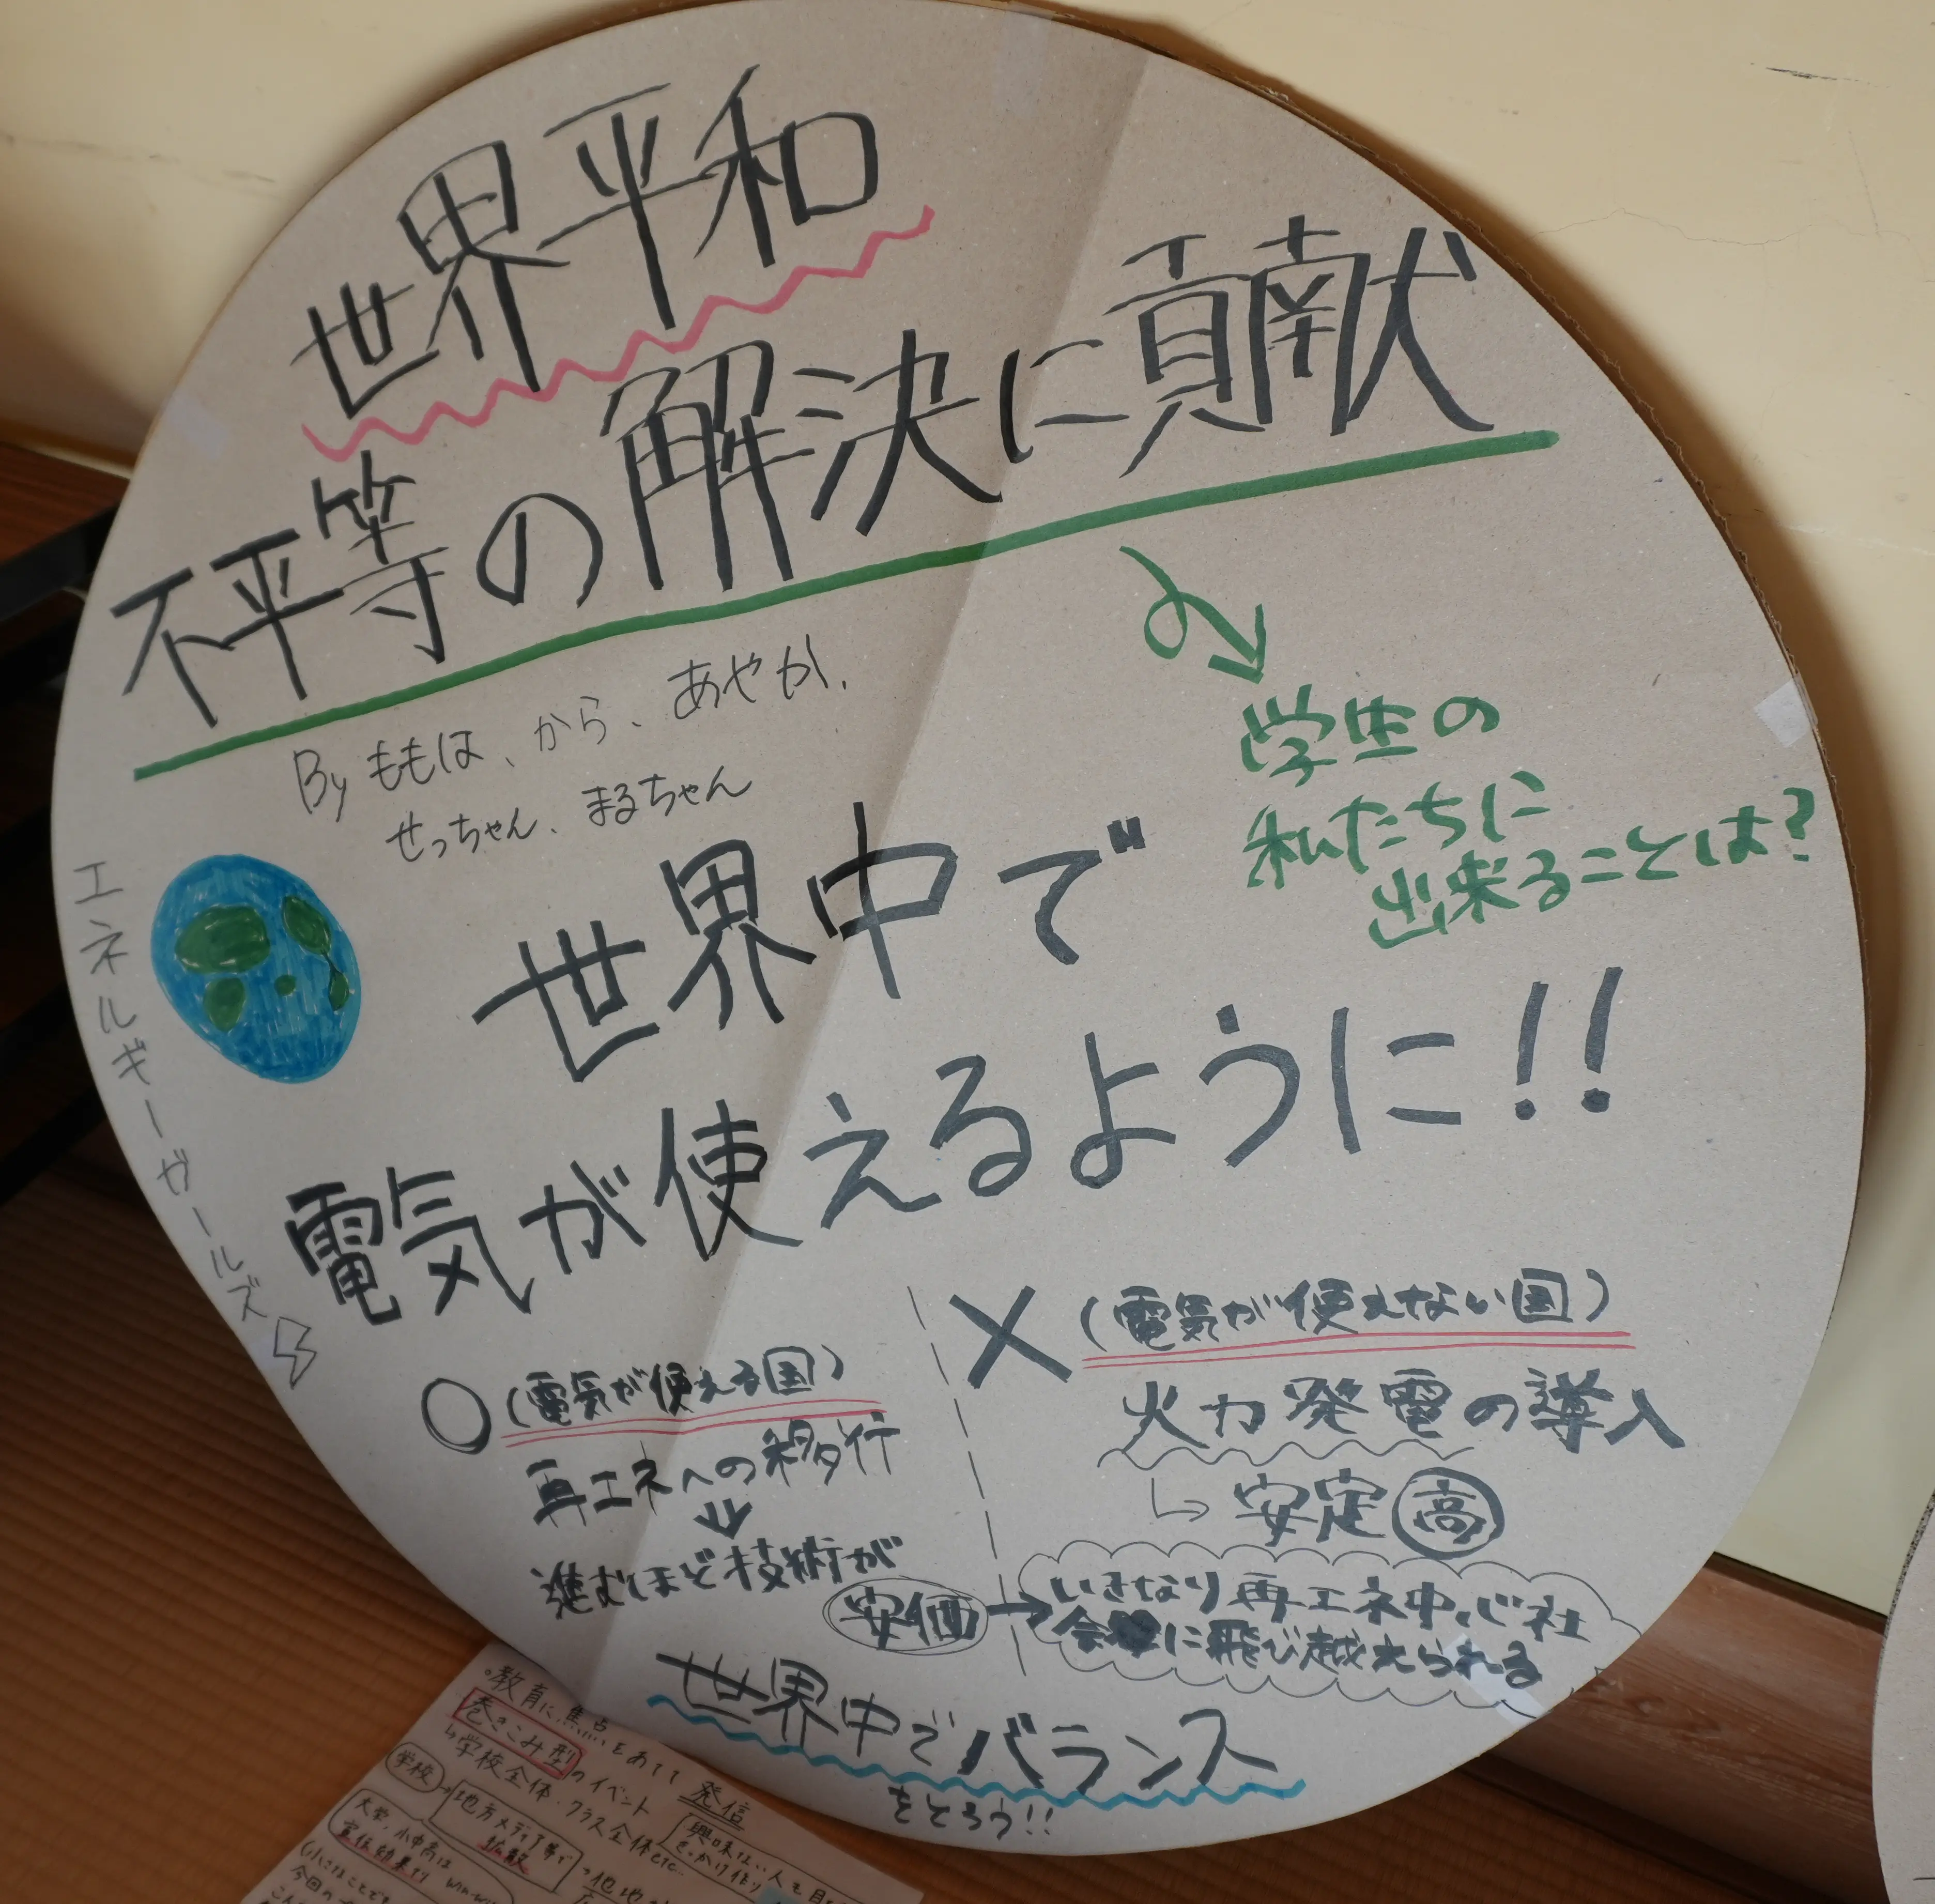 世界平和
不平等の解決に貢献
By ももは、から、あやか、
せっちゃん、まるちゃん
学生の
私たちに
出来ることは?
エネルギーガールズ
世界中で
電気が使えるように!!
○(電気が使える国)
再エネへの移行
進むほど技術が
安価→
×(電気が使えない国)
火力発電の導入
安定高
いきなり再エネ中心社
会に飛び越えられる
世界中でバランス
をとろう!!
教育に焦点をあてて発信
巻きこみ型のイベント
学校全体・クラス全体etc...
学校
地方メディア等で
拡散
興味ない人も
きっかけ作り
大学、小中高は
宣伝効果
win-wi
今回の